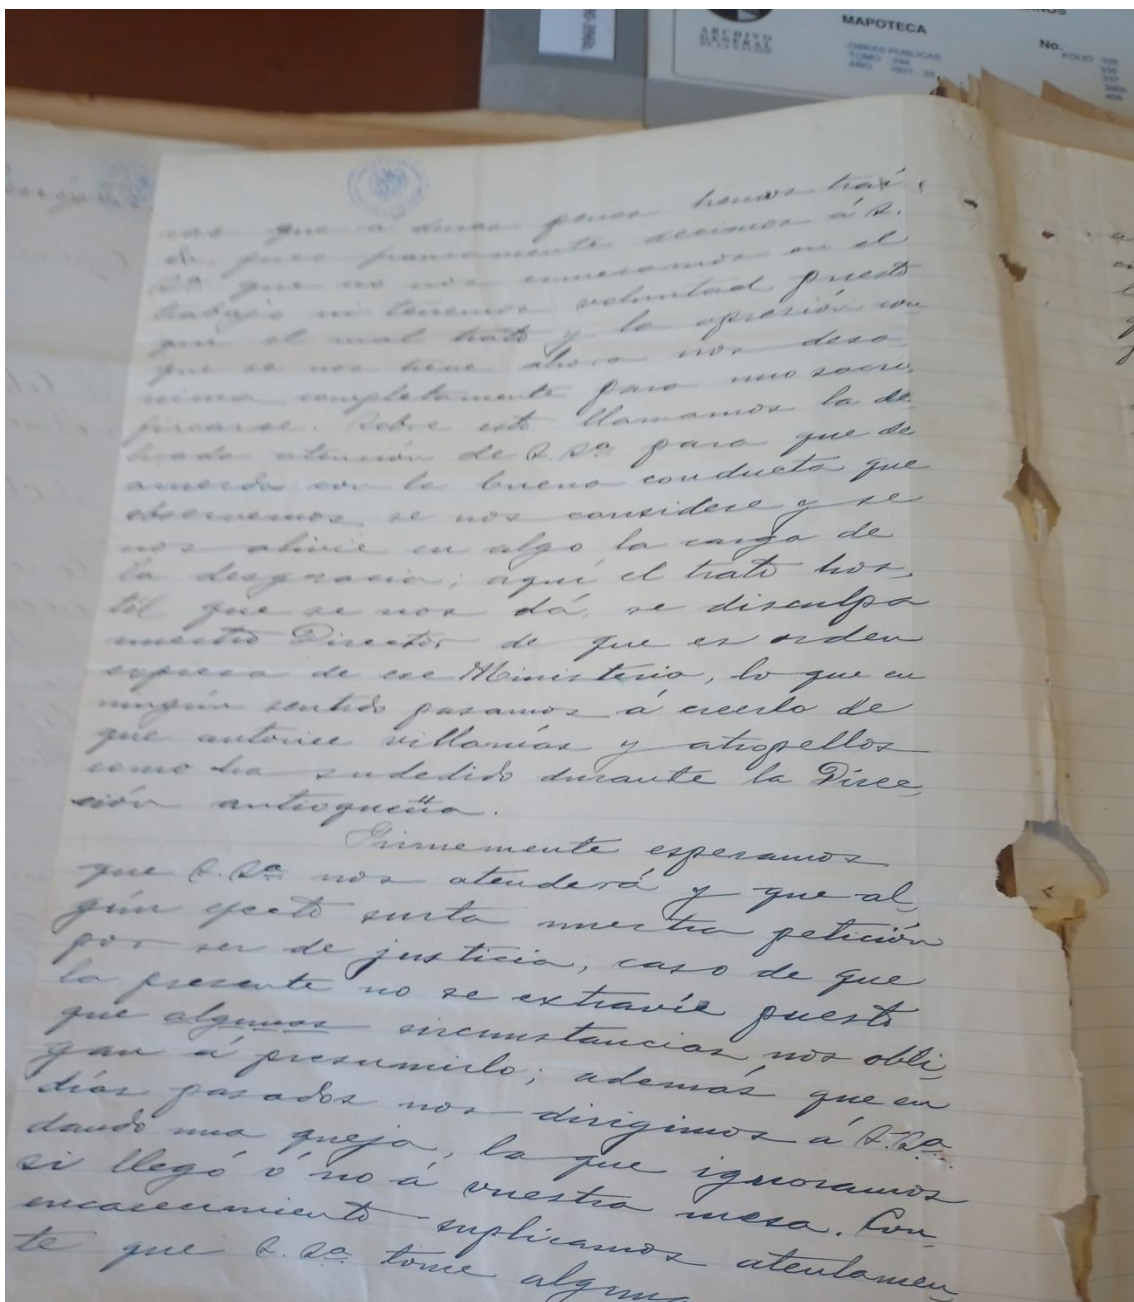 ARCHIVO
GENERAL
DE LA NACION
MAPOTECA
No.
OBRAS PUBLICAS
TOMO 294
AÑO 1931 - 33
FOLIO
vas que a duras penas hemos traí
do, pues francamente decimos á S.
Sª que no nos esmeramos en el
trabajo ni tenemos voluntad puesto
que el mal trato y la opresión con
que se nos tiene ahora nos desa
nima completamente para uno sacri
ficarse. Sobre esto llamamos la de
licada atención de S. Sª para que de
acuerdo con la buena conducta que
observemos se nos considere y se
nos alivie en algo la carga de
la desgracia; aquí el trato hos,
til que se nos dá, se disculpa
nuestro Director de que es orden
expresa de ese Ministerio, lo que en
ningún sentido pasamos á creerlo de
que autorice villanías y atropellos
como ha sudedido durante la Direc,
ción antioqueña.
Firmemente esperamos
que S. Sª nos atenderá y que al,
gún efecto surta nuestra petición
por ser de justicia, caso de que
la presente no se extravíe puesto
que algunas sircunstancias nos obli,
gan á presumirlo; además que en
días pasados nos dirigimos á S. Sª
dando una queja, la que ignoramos
si llegó ó no á vuestra mesa. Con
encarecimiento suplicamos atentamen,
te que S. Sª tome alguna